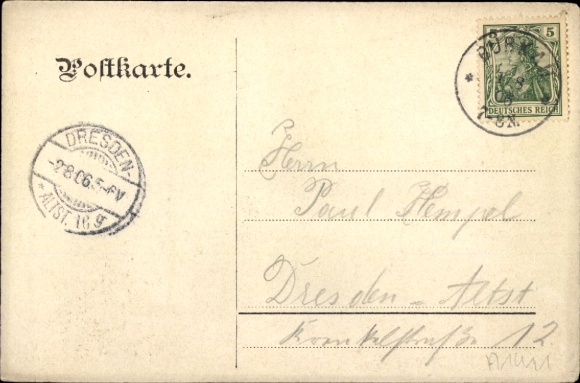 Postkarte.
5
DEUTSCHES REICH
7-8N.
DRESDEN-
-2.8.06.5-6V
* ALTST. 16 g
Herrn
Paul Hempel
Dresden-Altst
12.